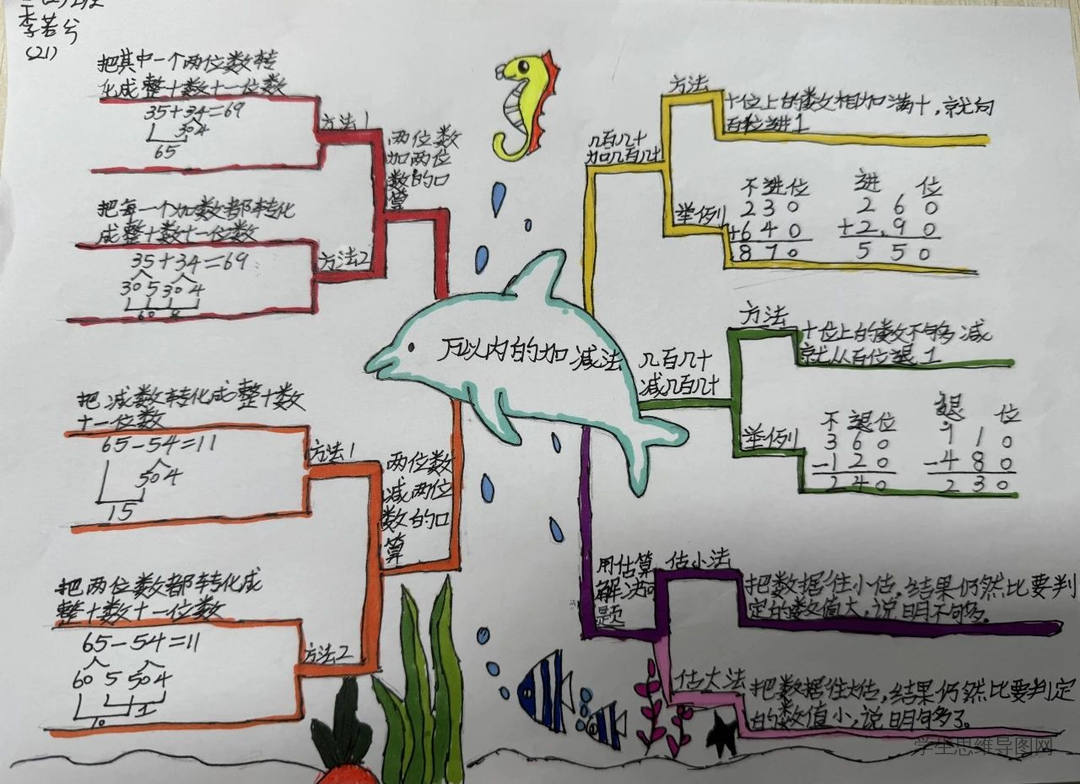 李若兮
(21)
把其中一个两位数转
化成整十数十一位数
35+34=69
30 4
65
方法1
把每一个加数都转化
成整十数十一位数
35+34=69
30 5 30 4
60
方法2
两位数
加两位
数的口
算
把减数转化成整十数
十一位数
65-54=11
50 4
15
方法1
把两位数都转化成
整十数十一位数
65-54=11
60 5 50 4
方法2
两位数
减两位
数的口
算
万以内的加减法
几百几十
加几百几十
方法
十位上的数相加满十，就向
百位进1
举例
不进位
230
+640
870
进 位
260
+2.90
550
几百几十
减几百几十
方法
十位上的数不够减
就从百位退1
举例
不退位
360
-120
240
退 位
710
-480
230
用估算
解决问
题
估小法
把数据往小估，结果仍然比要判
定的数值大，说明不够。
估大法
把数据往大估，结果仍然比要判定
的数值小，说明够了。
学生思维导图网